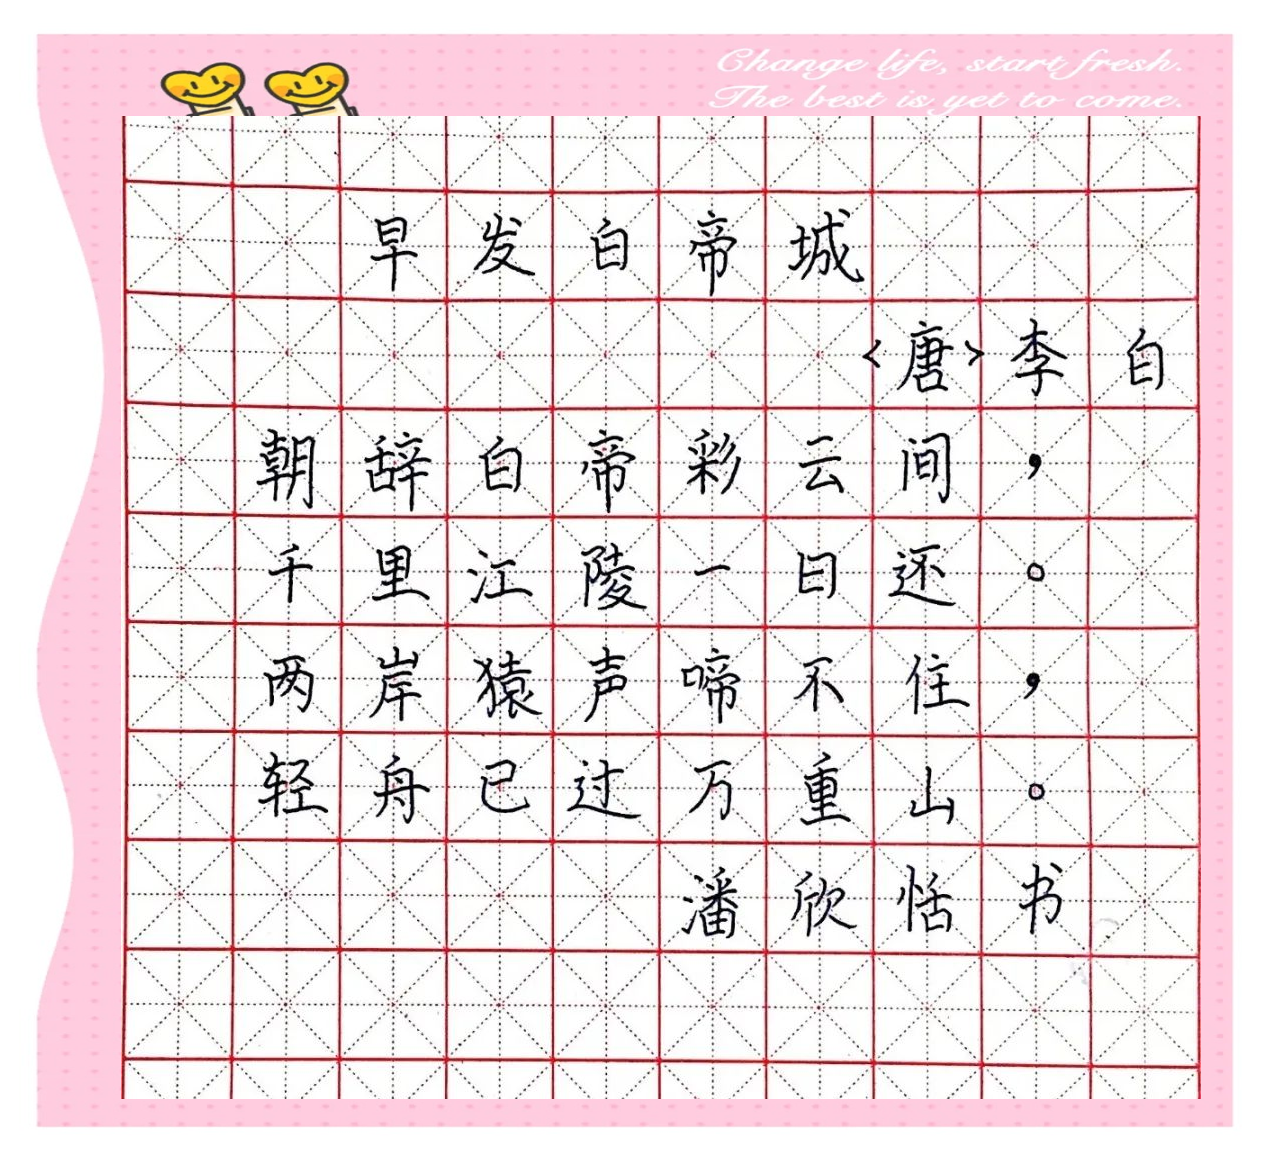 Change life, start fresh.
The best is yet to come.
早发白帝城
<唐>李白
朝辞白帝彩云间，
千里江陵一日还。
两岸猿声啼不住，
轻舟已过万重山。
潘欣恬书